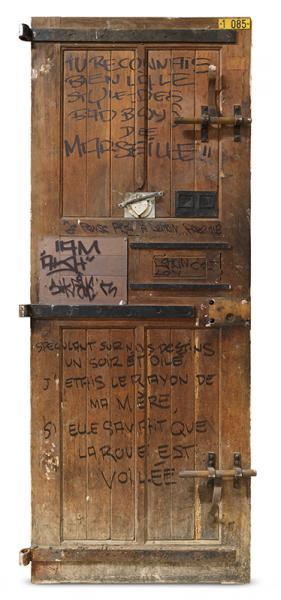 1 085
TU RECONNAIS
BEN LA LE
STYLE DES
BAD BOYS
DE
MARSEILLE!!
JE PENSE PAS A DEMAIN
IAM
SPECULANT SUR NOS DESTINS
UN SOIR ETOILE
J'ETAIS LE RAYON DE
MA MERE,
SI ELLE SAVAIT QUE
LA ROUE EST
VOILÉE